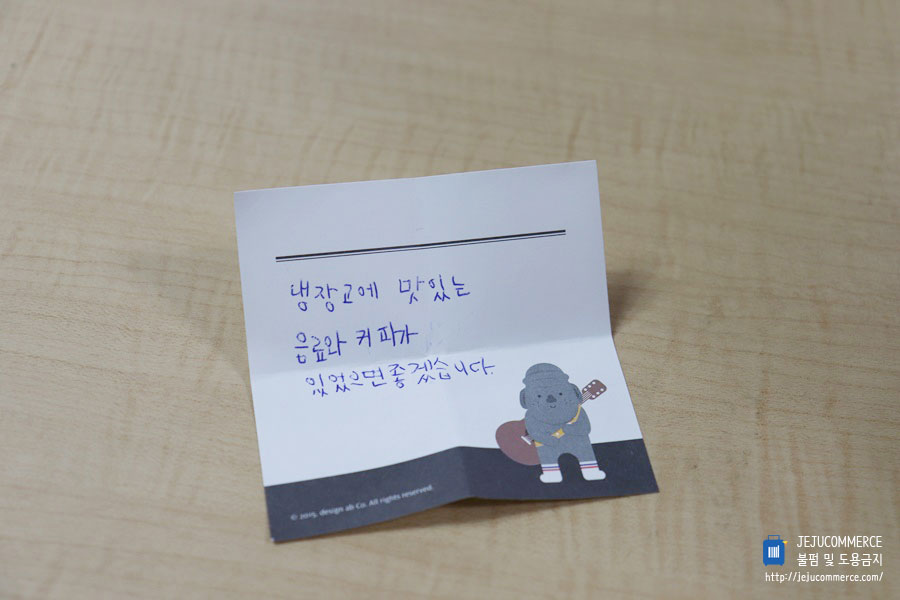 냉장고에 맛있는
음료와 커파가
있었으면 좋겠습니다.
© 2015, design ab Co. All rights reserved.
JEJUCOMMERCE
불펌 및 도용금지
http://jejucommerce.com/